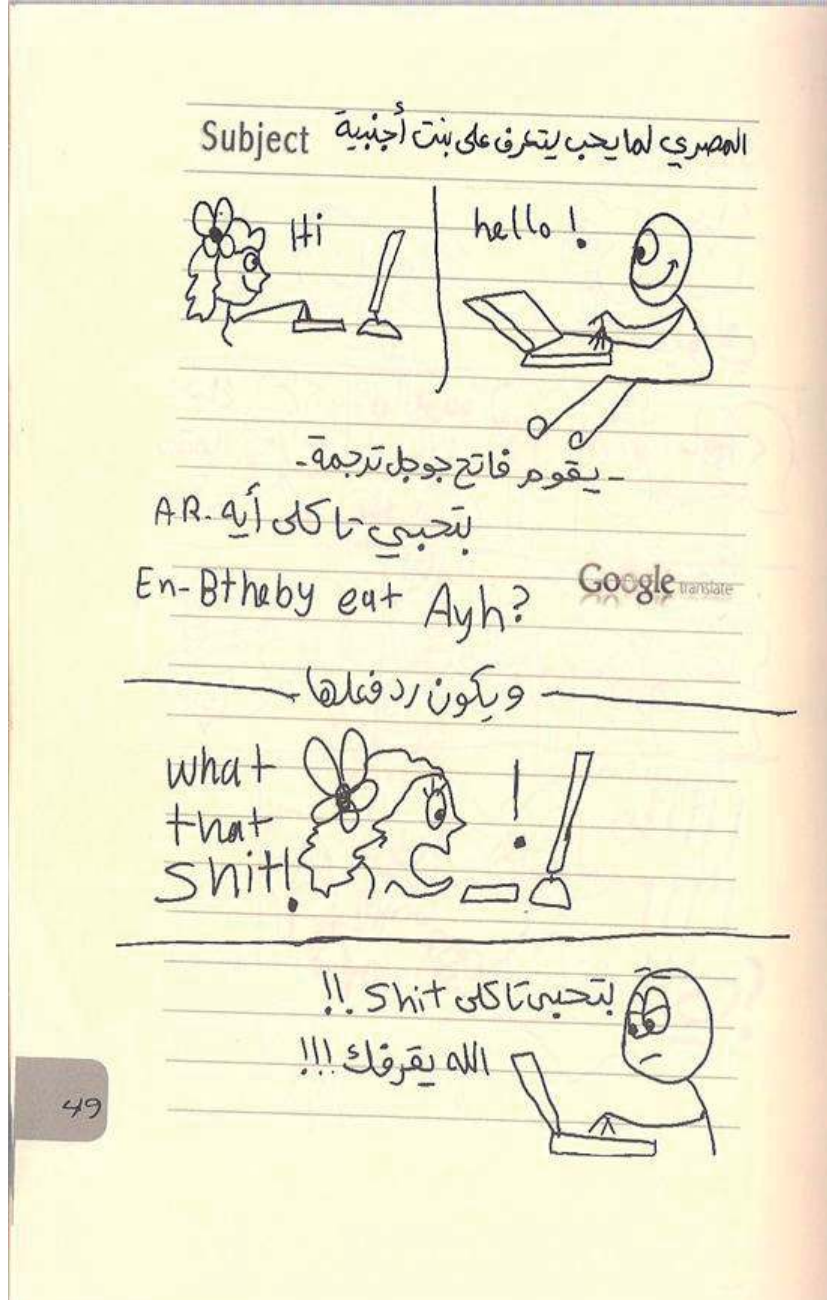 Subject المصري لما يحب يتعرف على بنت أجنبية
hello !
Hi
- يقوم فاتح جوجل ترجمة -
AR- بتحبي تاكلى أيه
En- Btheby eat Ayh?
Google translate
ويكون رد فعلها
what
that
shit!
!
بتحبى تاكلى shit !!
الله يقرفك !!!
49